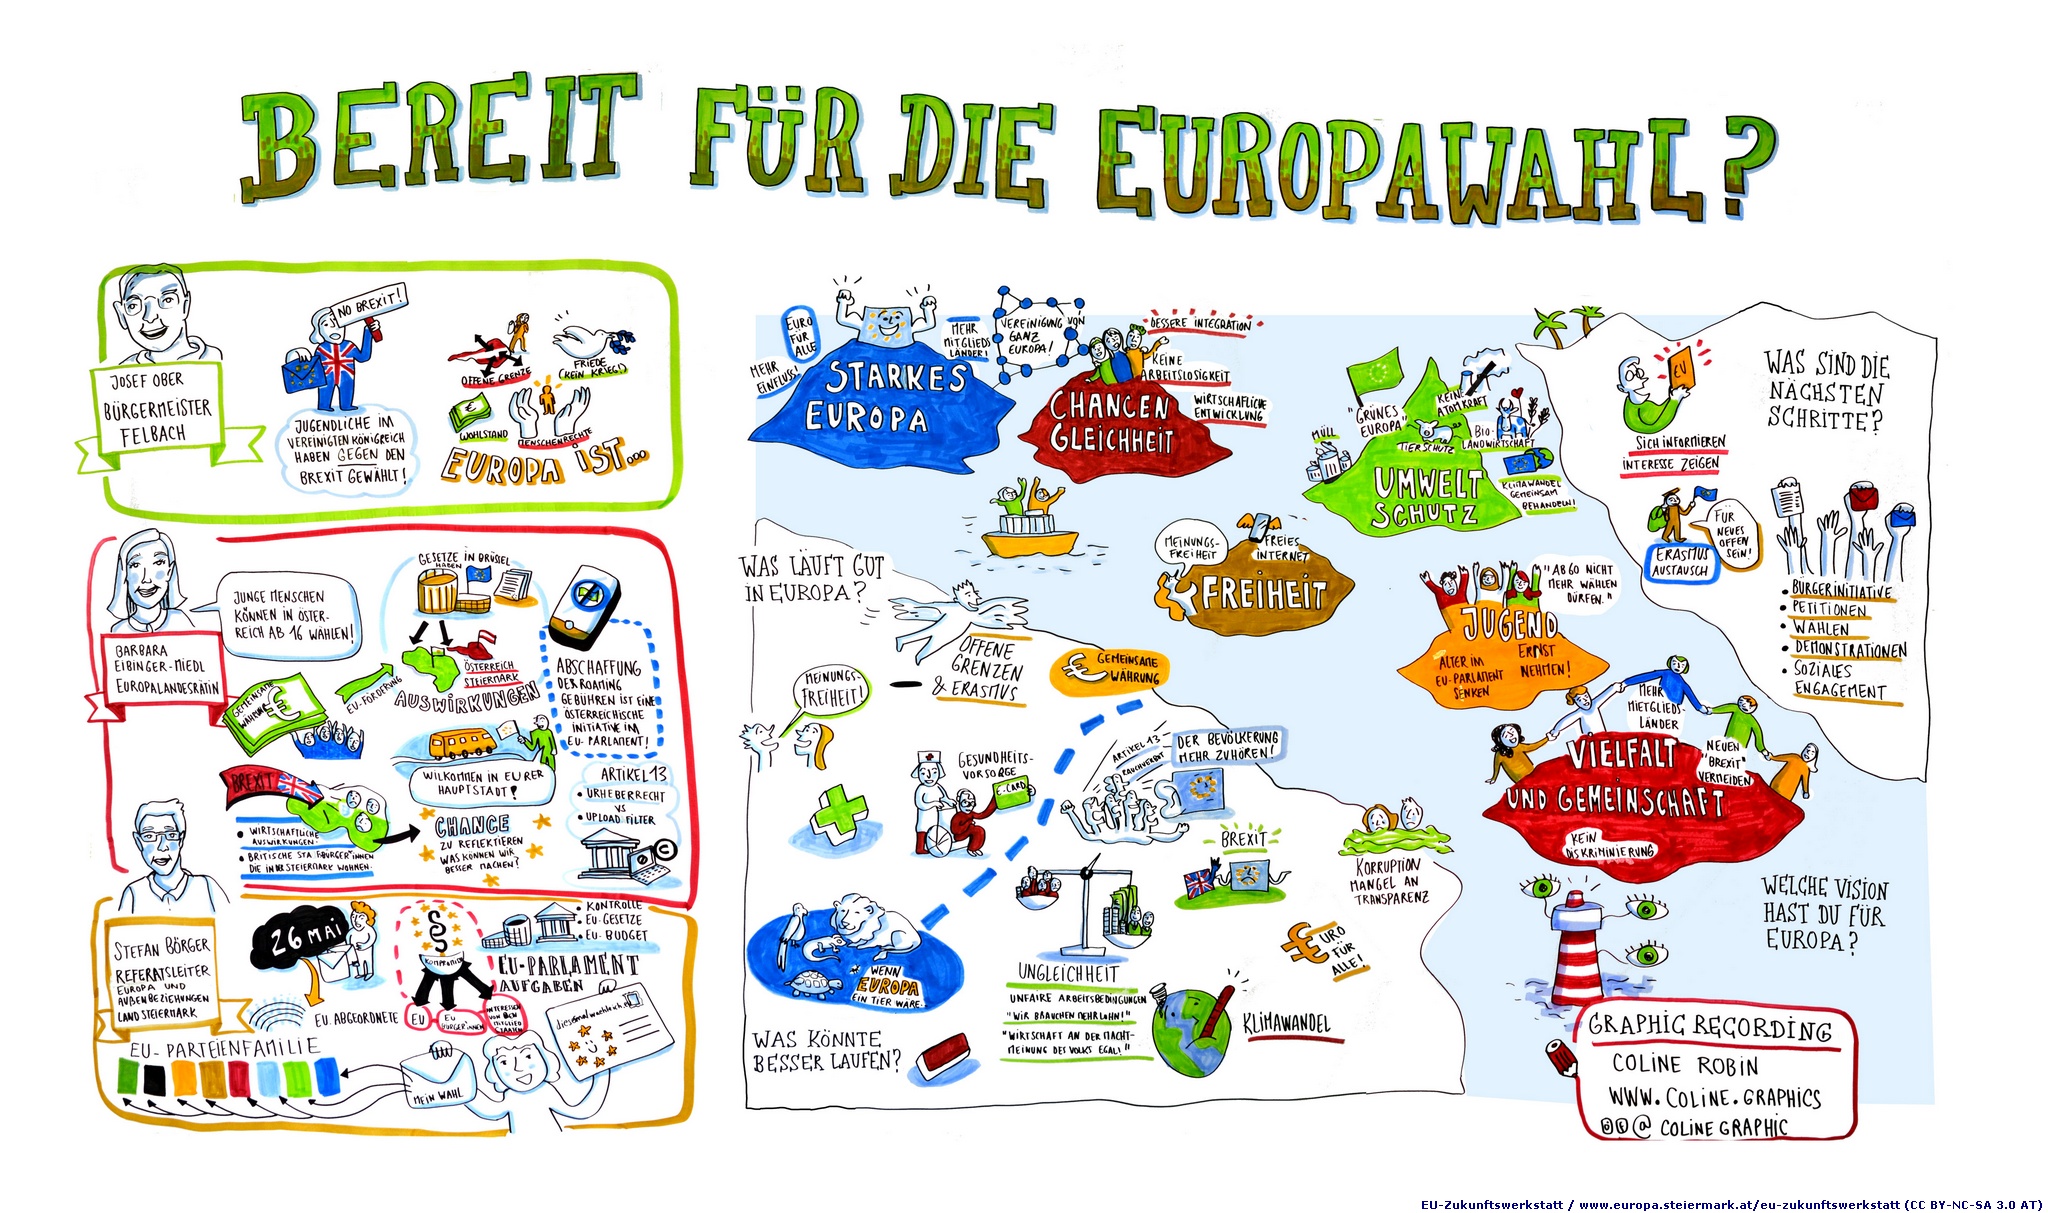 BEREIT FÜR DIE EUROPAWAHL?
JOSEF OBER
BÜRGERMEISTER
FELBACH
NO BREXIT!
JUGENDLICHE IM
VEREINIGTEN KÖNIGREICH
HABEN GEGEN DEN
BREXIT GEWÄHLT!
OFFENE GRENZE
FRIEDE
(KEIN KRIEG!)
WOHLSTAND
MENSCHENRECHTE
EUROPA IST...
BARBARA
EIBINGER-MIEDL
EUROPALANDESRÄTIN
JUNGE MENSCHEN
KÖNNEN IN ÖSTER-
REICH AB 16 WÄHLEN!
GESETZE IN BRÜSSEL
HABEN
ÖSTERREICH
STEIERMARK
AUSWIRKUNGEN
GEMEINSAME
WÄHRUNG
€
EU-FÖRDERUNG
ABSCHAFFUNG
DER ROAMING
GEBÜHREN IST EINE
ÖSTERREICHISCHE
INITIATIVE IM
EU-PARLAMENT!
WILKOMMEN IN EURER
HAUPTSTADT!
BREXIT
• WIRTSCHAFTLICHE
AUSWIRKUNGEN
• BRITISCHE STAATSBÜRGER*INNEN
DIE IN DER STEIERMARK WOHNEN
CHANCE
ZU REFLEKTIEREN
WAS KÖNNEN WIR
BESSER MACHEN?
ARTIKEL 13
• URHEBERRECHT
VS
• UPLOAD FILTER
©
STEFAN BÖRGER
REFERATSLEITER
EUROPA UND
AUßENBEZIEHUNGEN
LAND STEIERMARK
26 MAI
EU-ABGEORDNETE
§
KOMPROMISS
EU
EU
BÜRGER*INNEN
INTERESSEN
VON DEN
MITGLIED
STAATEN
• KONTROLLE
• EU-GESETZE
• EU-BUDGET
EU-PARLAMENT
AUFGABEN
diesmalwaehleich.eu
EU-PARTEIENFAMILIE
MEIN WAHL
MEHR
EINFLUSS!
EURO
FÜR
ALLE
MEHR
MITGLIEDS
LÄNDER!
STARKES
EUROPA
VEREINIGUNG VON
GANZ
EUROPA!
BESSERE INTEGRATION
KEINE
ARBEITSLOSIGKEIT
WIRTSCHAFLICHE
ENTWICKLUNG
CHANCEN
GLEICHHEIT
"GRÜNES
EUROPA"
KEINE
ATOMKRAFT
MÜLL
TIERSCHUTZ
BIO-
LANDWIRTSCHAFT
KLIMAWANDEL
GEMEINSAM
BEHANDELN!
UMWELT
SCHUTZ
MEINUNGS-
FREIHEIT
FREIES
INTERNET
FREIHEIT
"AB 60 NICHT
MEHR WÄHLEN
DÜRFEN."
JUGEND
ERNST
NEHMEN!
ALTER IM
EU-PARLAMENT
SENKEN
MEHR
MIETGLIEDS-
LÄNDER
VIELFALT
UND GEMEINSCHAFT
NEUEN
"BREXIT"
VERMEIDEN
KEIN
DISKRIMINIERUNG
WAS SIND DIE
NÄCHSTEN
SCHRITTE?
EU
SICH INFORMIEREN
INTERESSE ZEIGEN
FÜR
NEUES
OFFEN
SEIN!
ERASMUS
AUSTAUSCH
• BÜRGERINITIATIVE
• PETITIONEN
• WÄHLEN
• DEMONSTRATIONEN
• SOZIALES
ENGAGEMENT
WAS LÄUFT GUT
IN EUROPA?
OFFENE
GRENZEN
& ERASMUS
€ GEMEINSAME
WÄHRUNG
MEINUNGS-
FREIHEIT!
GESUNDHEITS-
VORSORGE
E-CARD
ARTIKEL 13
RAUCHVERBOT
DER BEVÖLKERUNG
MEHR ZUHÖREN!
BREXIT
KORRUPTION
MANGEL AN
TRANSPARENZ
WENN
EUROPA
EIN TIER WÄRE...
UNGLEICHHEIT
UNFAIRE ARBEITSBEDINGUNGEN
"WIR BRAUCHEN MEHR LOHN!"
"WIRTSCHAFT AN DER MACHT-
MEINUNG DES VOLKS EGAL!"
€URO
FÜR
ALLE!
KLIMAWANDEL
WAS KÖNNTE
BESSER LAUFEN?
WELCHE VISION
HAST DU FÜR
EUROPA?
GRAPHIC RECORDING
COLINE ROBIN
WWW.COLINE.GRAPHICS
@ COLINE GRAPHIC
EU-Zukunftswerkstatt / www.europa.steiermark.at/eu-zukunftswerkstatt (CC BY-NC-SA 3.0 AT)